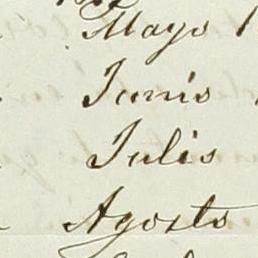 Mayo
Junio
Julio
Agosto